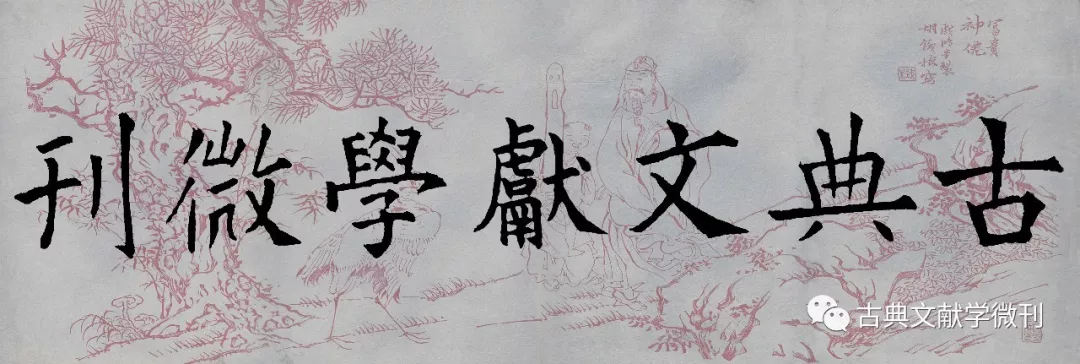 古典文獻學微刊
富貴
神僊
古典文献学微刊